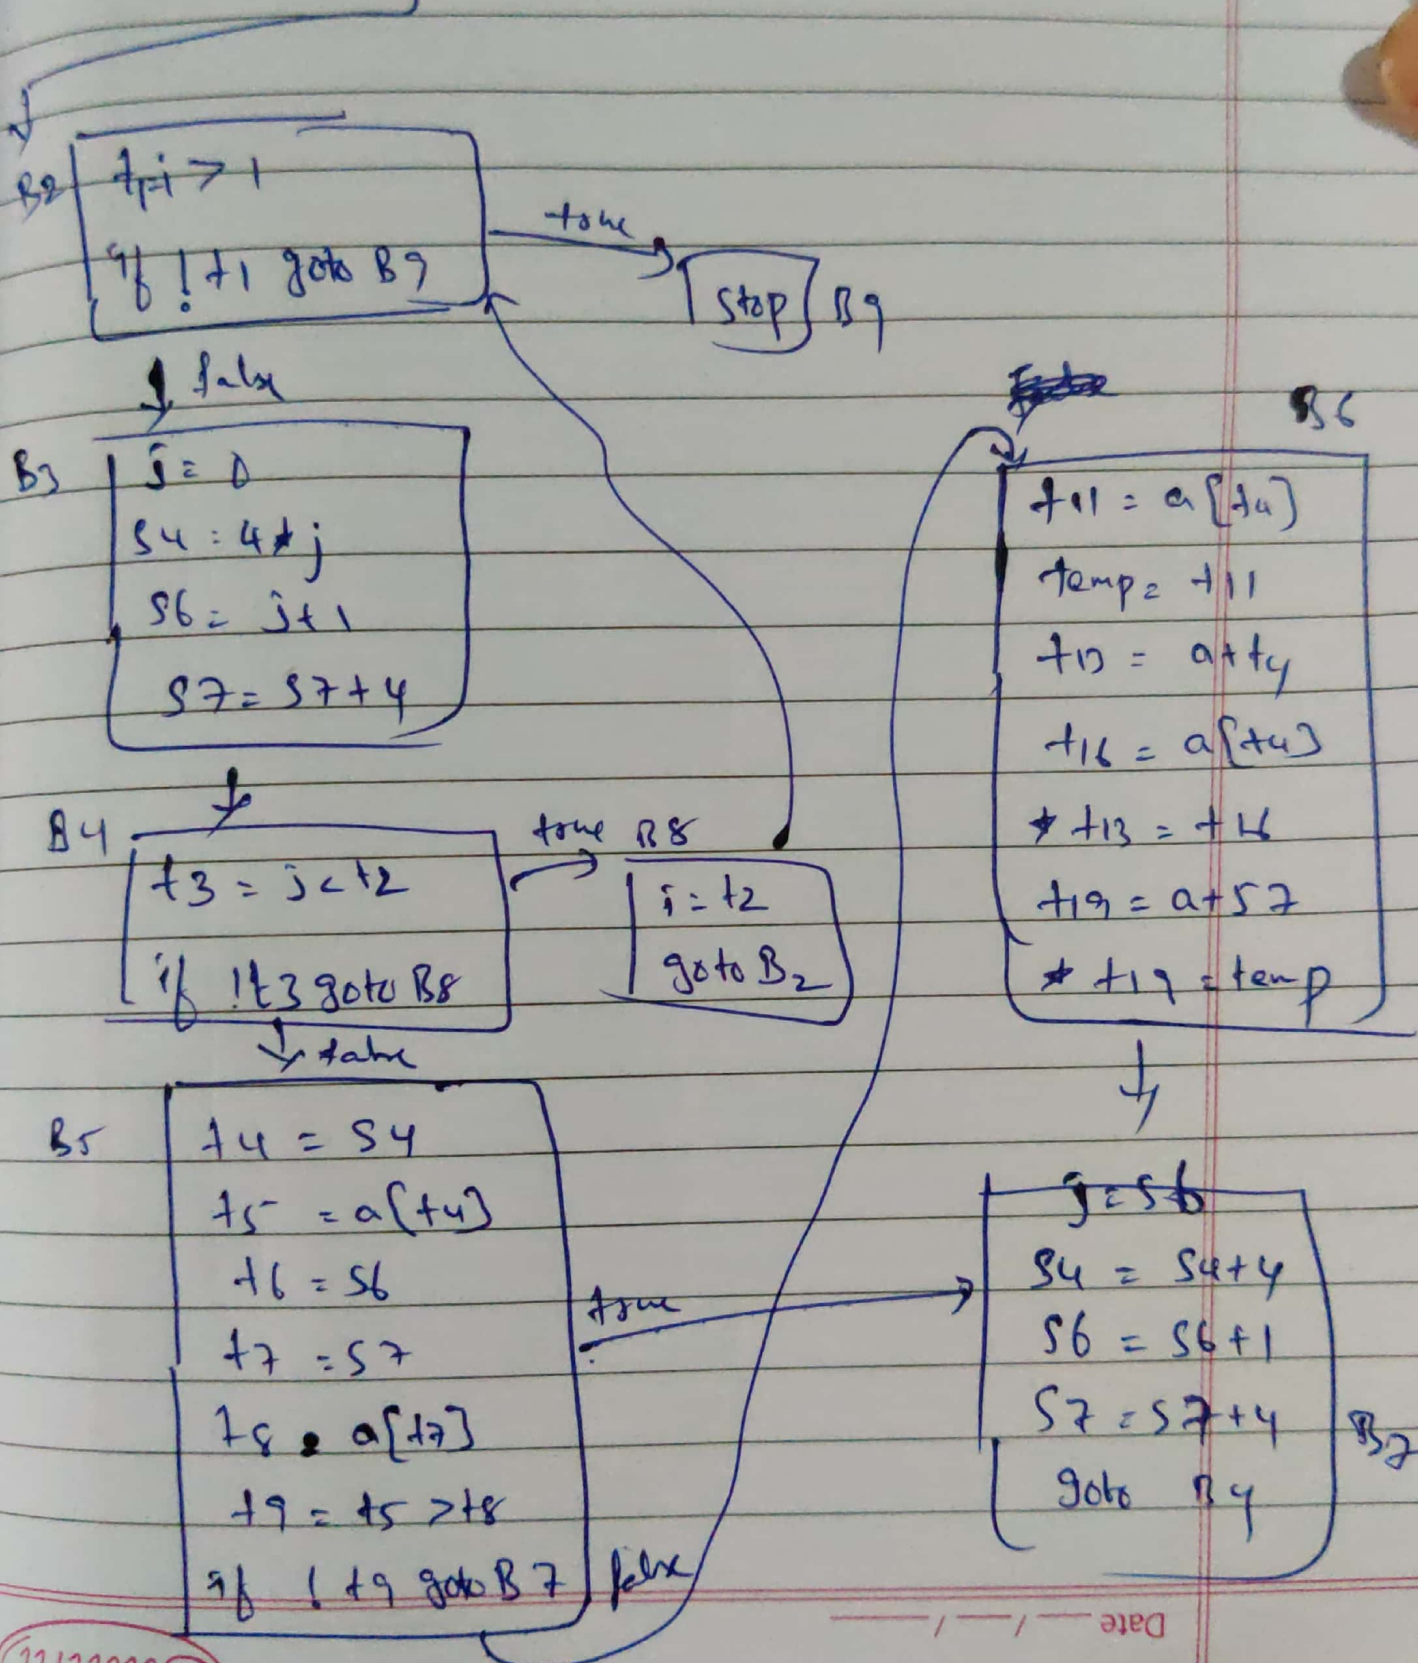 B2
t1=i > 1
if ! t1 goto B9
true
stop
B9
false
B3
j = 0
S4 = 4 * j
S6 = j+1
S7 = S7+4
B4
t3 = j<t2
if !t3 goto B8
true
B8
i = t2
goto B2
false
B5
t4 = S4
t5 = a[t4]
t6 = S6
t7 = S7
t8 = a[t7]
t9 = t5 > t8
if ! t9 goto B7
true
false
B6
t11 = a[t4]
temp = t11
t13 = a+t4
t16 = a[t4]
* t13 = t16
t19 = a+S7
* t19 = temp
j = S6
S4 = S4+4
S6 = S6+1
S7 = S7+4
goto B4
B7
Date